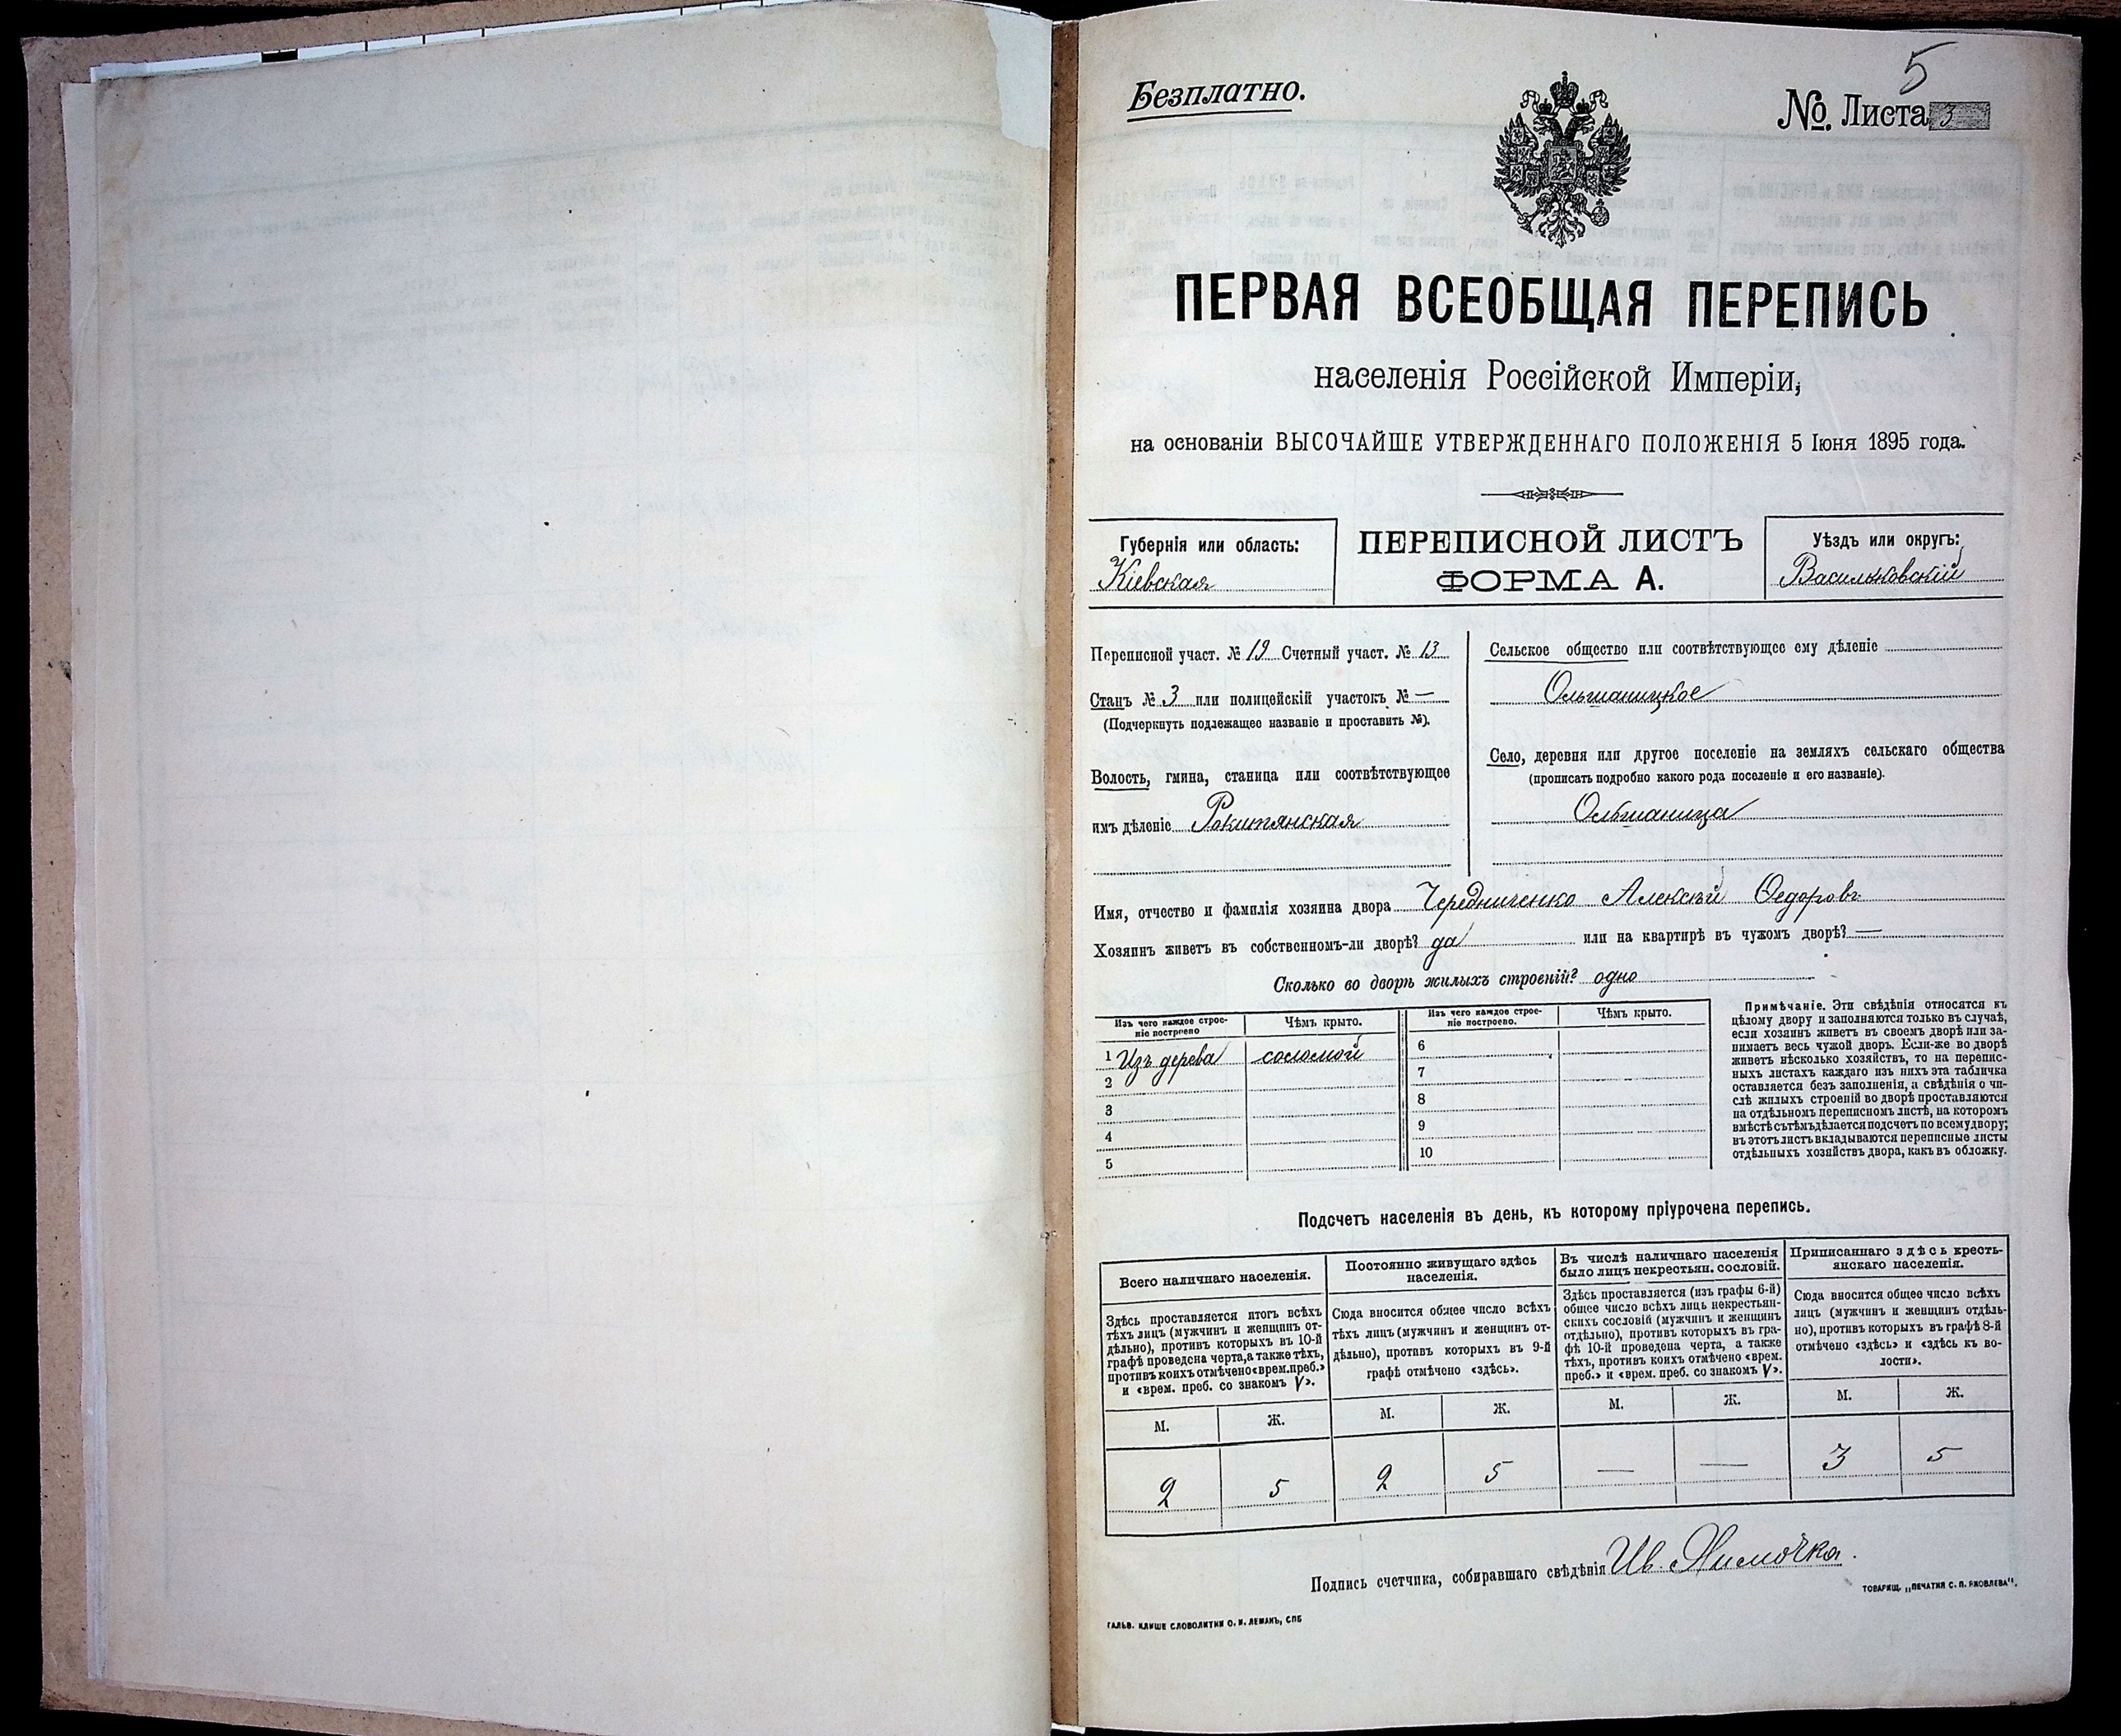 5
Безплатно.
№. Листа 3
ПЕРВАЯ ВСЕОБЩАЯ ПЕРЕПИСЬ
населенія Россійской Имперіи,
на основаніи ВЫСОЧАЙШЕ УТВЕРЖДЕННАГО ПОЛОЖЕНІЯ 5 Іюня 1895 года.
Губернія или область:
Кіевская
ПЕРЕПИСНОЙ ЛИСТЪ
ФОРМА А.
Уѣздъ или округъ:
Васильковскій
Переписной участ. № 19 Счетный участ. № 13
Станъ № 3 или полицейскій участокъ № —
(Подчеркнуть подлежащее названіе и проставить №).
Волость, гмина, станица или соотвѣтствующее
имъ дѣленіе Рокитянская
Сельское общество или соотвѣтствующее ему дѣленіе
Ольшаницкое
Село, деревня или другое поселеніе на земляхъ сельскаго общества
(прописать подробно какого рода поселеніе и его названіе).
Ольшаница
Имя, отчество и фамилія хозяина двора Чередниченко Алексѣй Ѳедоровъ
Хозяинъ живетъ въ собственномъ-ли дворѣ? да или на квартирѣ въ чужомъ дворѣ? —
Сколько во дворѣ жилыхъ строеній? одно
Изъ чего каждое строе-
ніе построено
Чѣмъ крыто.
1 Изъ дерева соломой
2
3
4
5
Изъ чего каждое строе-
ніе построено.
Чѣмъ крыто.
6
7
8
9
10
Примѣчаніе. Эти свѣдѣнія относятся къ
цѣлому двору и заполняются только въ случаѣ,
если хозяинъ живетъ въ своемъ дворѣ или за-
нимаетъ весь чужой дворъ. Если-же во дворѣ
живетъ нѣсколько хозяйствъ, то на перепис-
ныхъ листахъ каждаго изъ нихъ эта табличка
оставляется безъ заполненія, а свѣдѣнія о чи-
слѣ жилыхъ строеній во дворѣ проставляются
на отдѣльномъ переписномъ листѣ, на которомъ
вмѣстѣ съ тѣмъ дѣлается подсчетъ по всему двору;
въ этотъ листъ вкладываются переписные листы
отдѣльныхъ хозяйствъ двора, какъ въ обложку.
Подсчетъ населенія въ день, къ которому пріурочена перепись.
Всего наличнаго населенія.
Здѣсь проставляется итогъ всѣхъ
тѣхъ лицъ (мужчинъ и женщинъ от-
дѣльно), противъ которыхъ въ 10-й
графѣ проведена черта, а также тѣхъ,
противъ коихъ отмѣчено «врем. преб.»
и «врем. преб. со знакомъ V».
М. Ж.
2 5
Постоянно живущаго здѣсь
населенія.
Сюда вносится общее число всѣхъ
тѣхъ лицъ (мужчинъ и женщинъ от-
дѣльно), противъ которыхъ въ 9-й
графѣ отмѣчено «здѣсь».
М. Ж.
2 5
Въ числѣ наличнаго населенія
было лицъ некрестьян. сословій.
Здѣсь проставляется (изъ графы 6-й)
общее число всѣхъ лицъ некрестьян-
скихъ сословій (мужчинъ и женщинъ
отдѣльно), противъ которыхъ въ гра-
фѣ 10-й проведена черта, а также
тѣхъ, противъ коихъ отмѣчено «врем.
преб.» и «врем. преб. со знакомъ V».
М. Ж.
— —
Приписаннаго здѣсь кресть-
янскаго населенія.
Сюда вносится общее число всѣхъ
лицъ (мужчинъ и женщинъ отдѣль-
но), противъ которыхъ въ графѣ 8-й
отмѣчено «здѣсь» и «здѣсь къ во-
лости».
М. Ж.
3 5
Подпись счетчика, собиравшаго свѣдѣнія Ив.
ТОВАРИЩ. „ПЕЧАТНЯ С. П. ЯКОВЛЕВА".
ГАЛЬВ. КЛИШЕ СЛОВОЛИТНИ О. И. ЛЕМАНЪ, СПБ